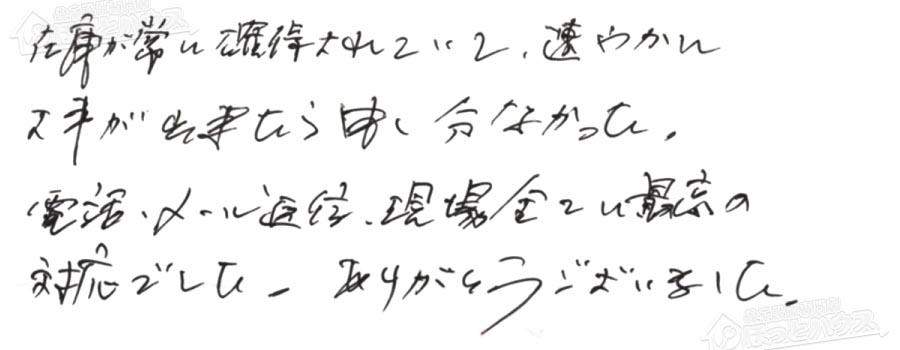 在庫が常に確保されていて、速やかに
工事が出来たら申し分なかった。
電話・メール返信、現場全てに最高の
対応でした。ありがとうございました。
ほっとハウス
ほっとハウス